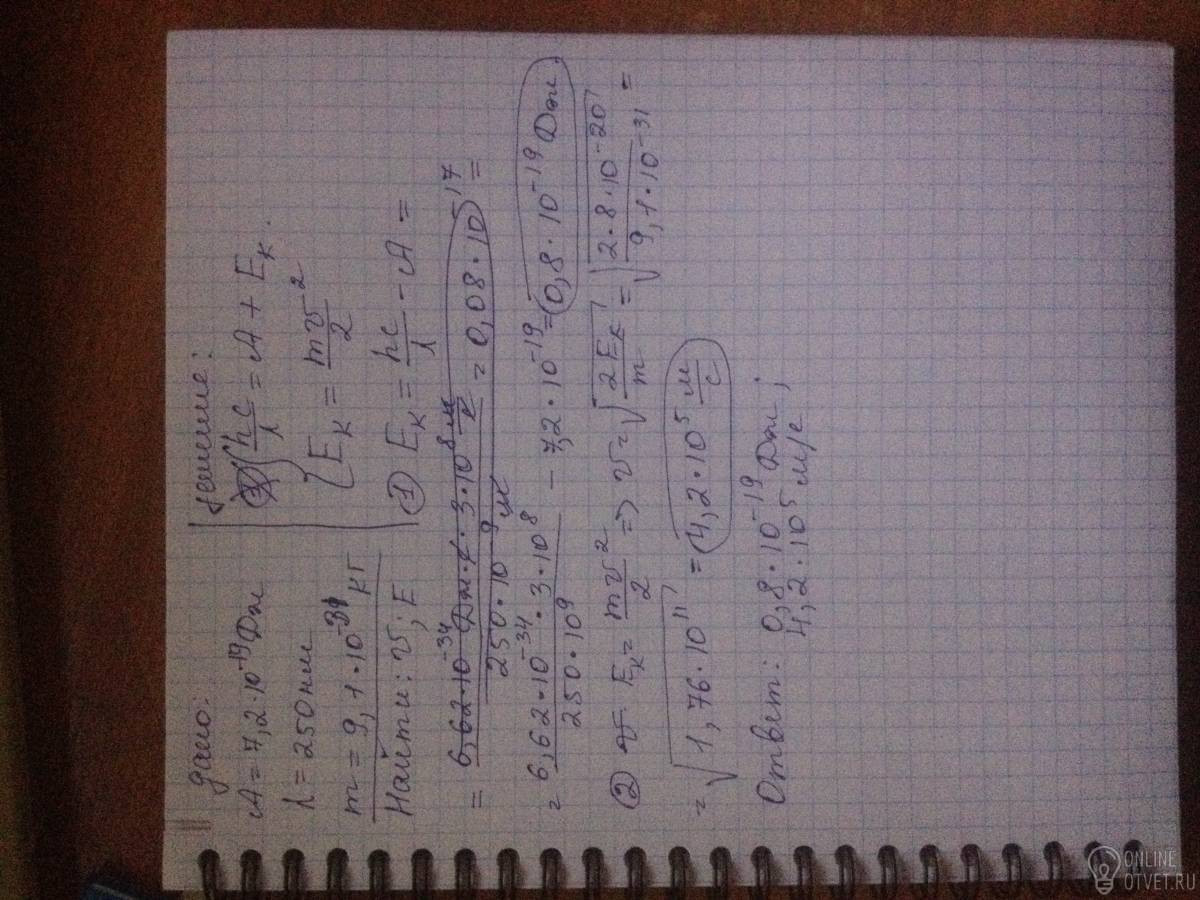 дано:
A = 7,2·10⁻¹⁹ Дж
λ = 250 нм
m = 9,1·10⁻³¹ кг
Найти: v; E
решение:
{ hc/λ = A + Eк.
{ Eк = mv²/2
① Eк = hc/λ - A =
= 6,62·10⁻³⁴ Дж·с·3·10⁸ м/с / 250·10⁹ м = 0,08·10¹⁷ =
= 6,62·10⁻³⁴·3·10⁸ / 250·10⁹ - 7,2·10⁻¹⁹ = 0,8·10⁻¹⁹ Дж;
② Eк = mv²/2 => v = √(2Eк/m) = √(2·8·10⁻²⁰ / 9,1·10⁻³¹) =
= √(1,76·10¹¹) = 4,2·10⁵ м/с
Ответ: 0,8·10⁻¹⁹ Дж;
4,2·10⁵ м/с
ONLINE
OTVET.RU